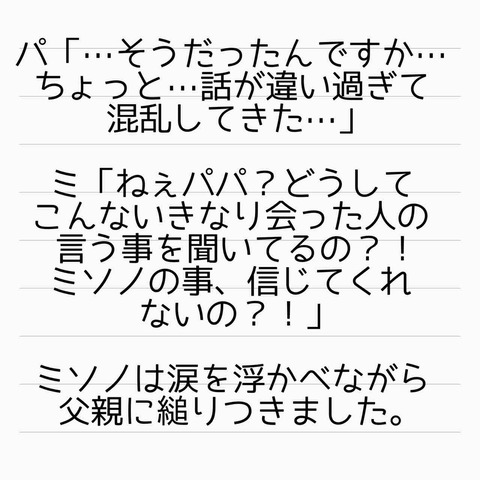 パ「…そうだったんですか…
ちょっと…話が違い過ぎて
混乱してきた…」
ミ「ねぇパパ？どうして
こんないきなり会った人の
言う事を聞いてるの？！
ミソノの事、信じてくれ
ないの？！」
ミソノは涙を浮かべながら
父親に縋りつきました。